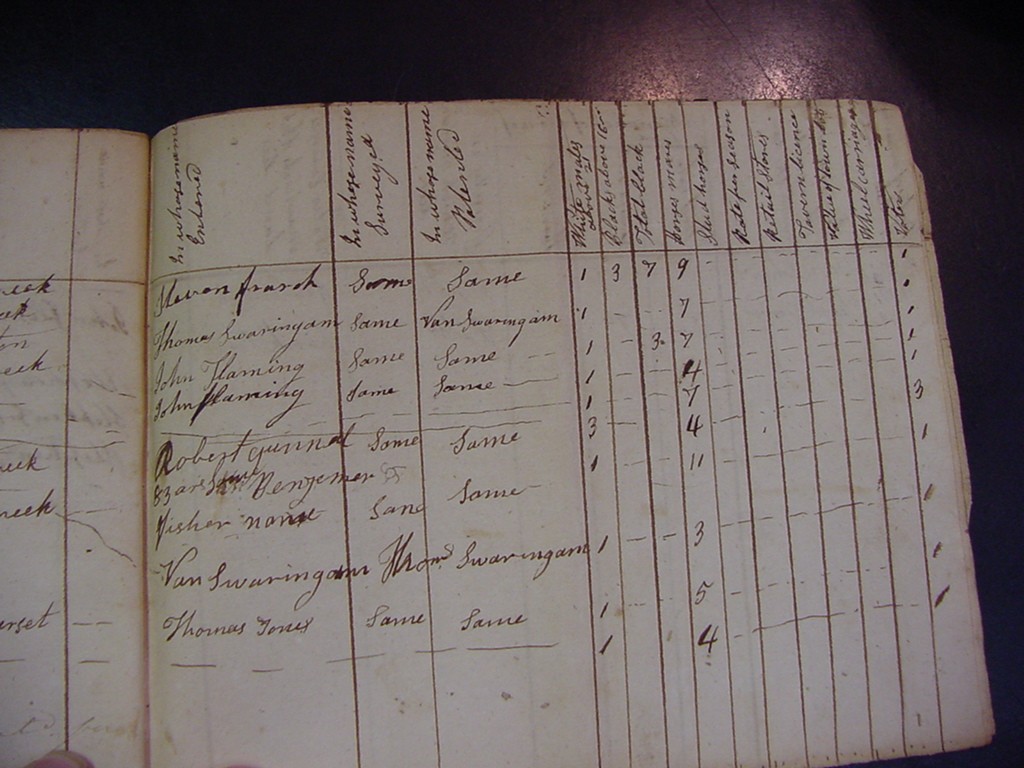 In whose name Entered
In whose name Surveyed
In whose name Patented
White males above 21
Blacks above 16
Total black
Horses mares
Stud horses
Rate per season
Retail Stores
Tavern licence
Value of town lots
Wheel carriages
reek
Same Same 1 3 7 9 1
eek
Thomas Swaringam Same Van Swaringam 1 7 1
John Flaming Same Same 1 3 7 1
reek
John Flaming Same Same 1 4 1
1 7
Robert Same Same 3 4 3
reek
1 11 1
name Same Same
reek
Van Swaringam Thomd Swaringam 1 3 1
1 5 1
urset
Thomas Jones Same Same
1 4 1